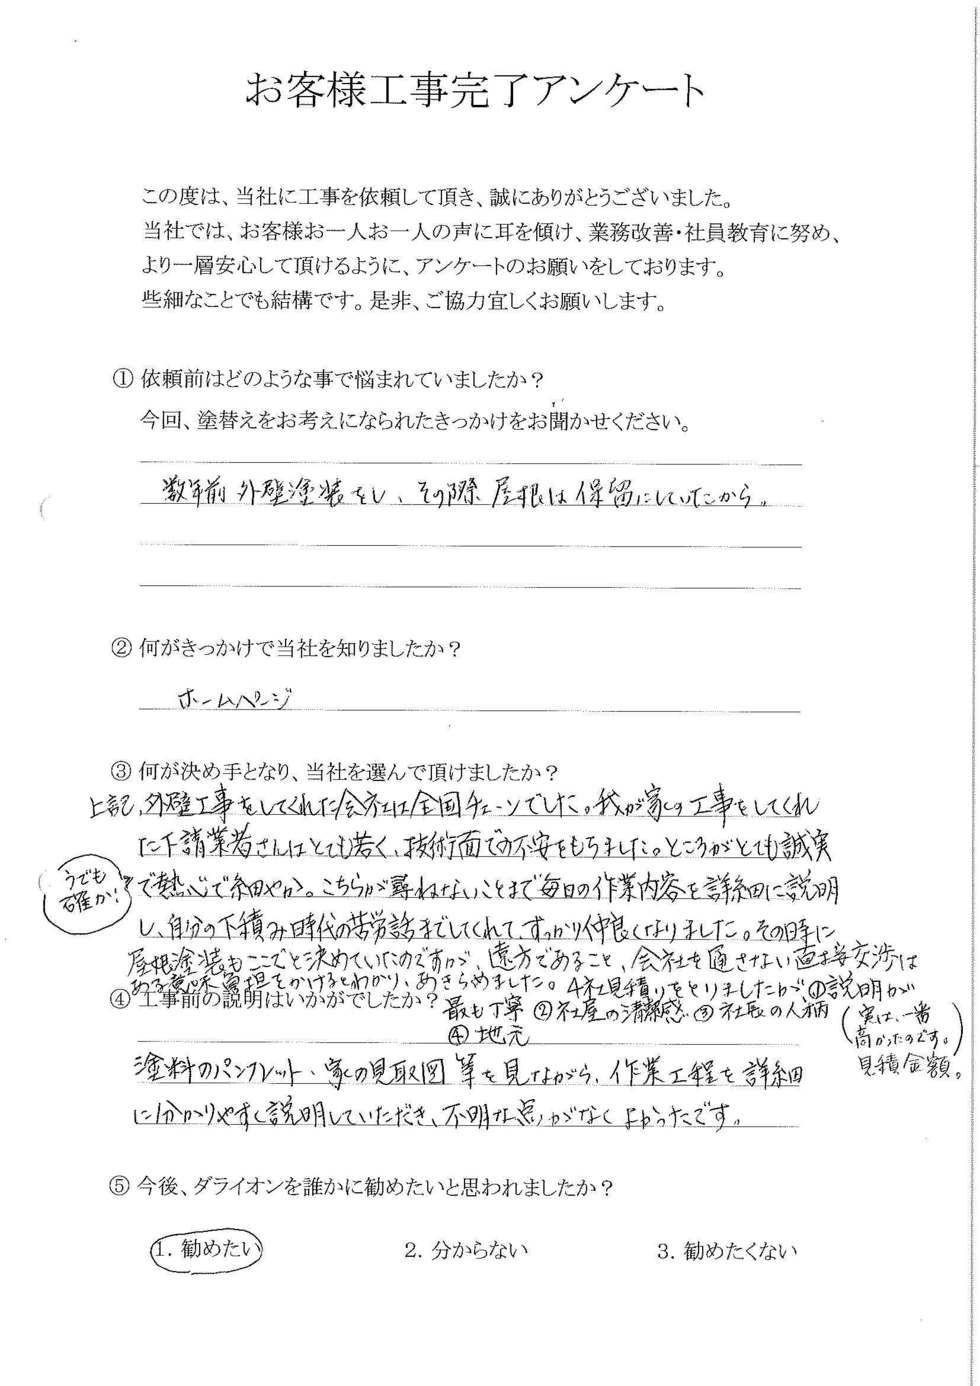 お客様工事完了アンケート
この度は、当社に工事を依頼して頂き、誠にありがとうございました。
当社では、お客様お一人お一人の声に耳を傾け、業務改善・社員教育に努め、
より一層安心して頂けるように、アンケートのお願いをしております。
些細なことでも結構です。是非、ご協力宜しくお願いします。
① 依頼前はどのような事で悩まれていましたか？
今回、塗替えをお考えになられたきっかけをお聞かせください。
数年前 外壁塗装をし、その際 屋根は保留にしていたから。
② 何がきっかけで当社を知りましたか？
ホームページ
③ 何が決め手となり、当社を選んで頂けましたか？
上記、外壁工事をしてくれた会社は全国チェーンでした。我が家の工事をしてくれ
た下請業者さんはとても若く、技術面での不安をもちました。ところがとても誠実
で熱心で細やか。こちらが尋ねないことまで毎日の作業内容を詳細に説明
うでも
確か！
し、自分の下積み時代の苦労話までしてくれて、すっかり仲良くなりました。その時に
屋根塗装もここでと決めていたのですが、遠方であること、会社を通さない直接交渉は
ある意味 負担をかけるとわかり、あきらめました。4社見積りをとりましたが、①説明が
④ 工事前の説明はいかがでしたか？
最も丁寧 ②社屋の清潔感 ③社長の人柄
④地元
（実は、一番
高かったのです。
見積金額。）
塗料のパンフレット、家の見取図 等を見ながら、作業工程を詳細
に分かりやすく説明していただき、不明な点がなくよかったです。
⑤ 今後、ダライオンを誰かに勧めたいと思われましたか？
1. 勧めたい 2. 分からない 3. 勧めたくない